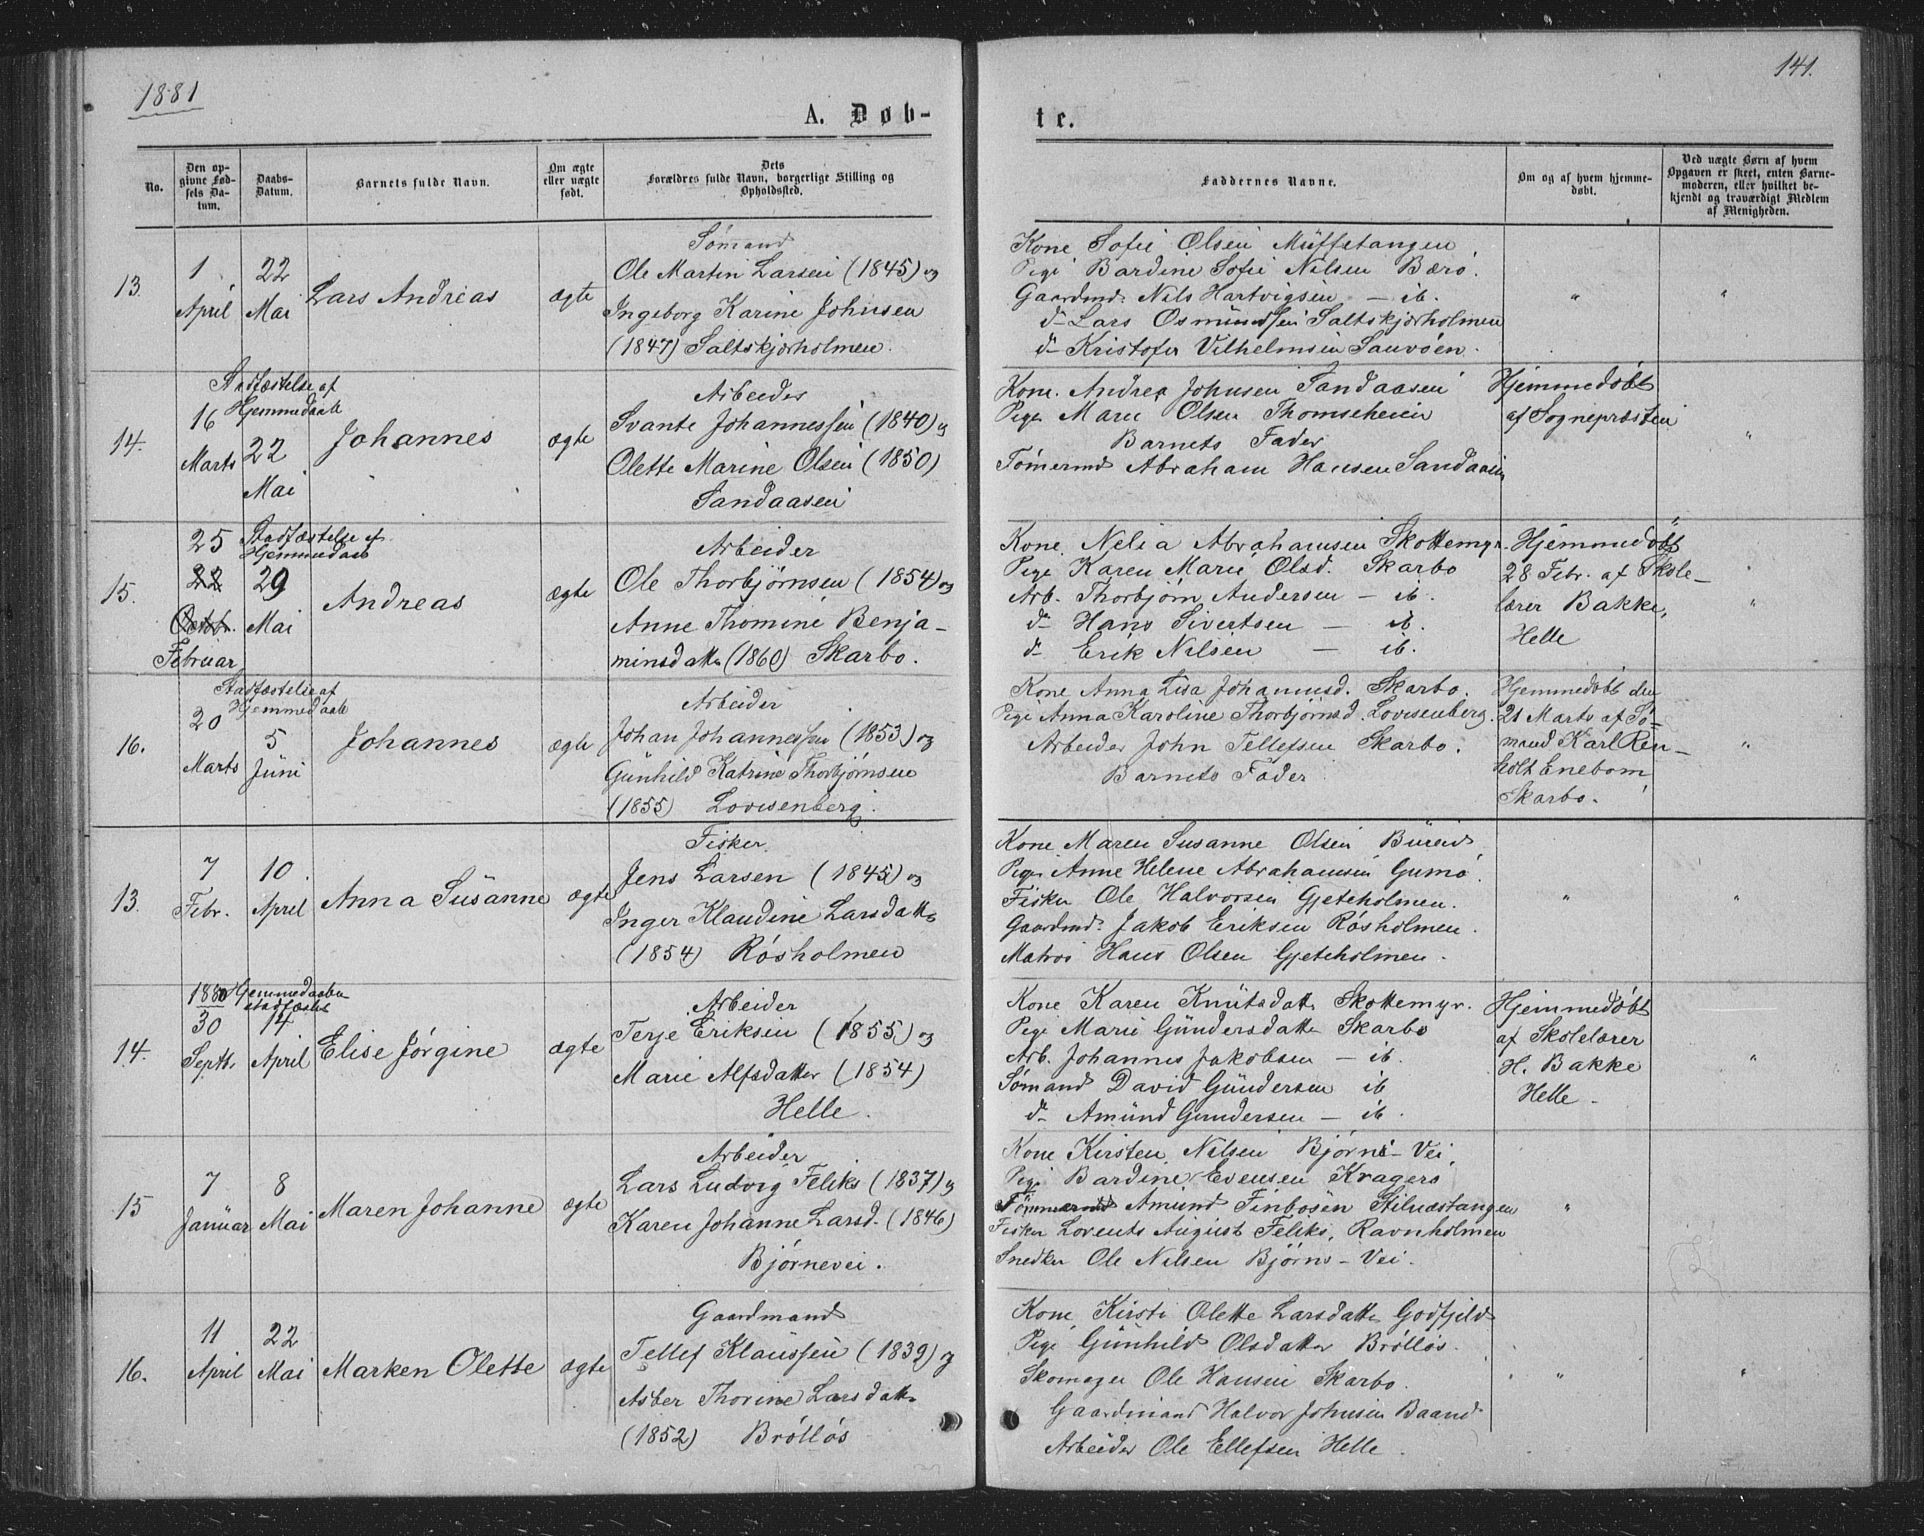 1881
141.
A. Døb-
te.
No.
Den op-
givne Fød-
sels Da-
tum.
Daabs-
Datum.
Barnets fulde Navn.
Om ægte
eller uægte
født.
Dets
Forældres fulde Navn, borgerlige Stilling og
Opholdssted.
Faddernes Navne.
Om og af hvem hjemme-
døbt.
Ved uægte Børn af hvem
Opgaven er skeet, enten Barne-
moderen, eller hvilket be-
kjendt og troværdigt Medlem
af Menigheden.
13.
1
April
22
Mai
Lars Andreas
ægte
Sømand
Ole Martin Larsen (1845) og
Ingeborg Karine Johnsen
(1847) Saltskjærholmen.
Kone Sofie Olsen Müffetangen
Pige Bardine Sofie Nilsen Bærø.
Gaardmd. Nils Hartvigsen — ib.
d- Lars Osmundsen Saltskjærholmen
d- Kristofer Vilhelmsen Sauvøen.
"
"
14.
Stadfæstelse af
Hjemmedaab
16
Marts
22
Mai
Johannes
ægte
Arbeider
Svante Johannessen (1840) og
Olette Marine Olsen (1850)
Sandaasen
Kone. Andrea Johnsen Sandaasen
Pige Maren Olsen Thomseheien
Barnets Fader
Tømermd Abraham Hansen Sandaasen
Hjemmedøbt
af Sognepræsten
"
15.
25
22
Octbr.
Februar
Stadfæstelse af
Hjemmedaab
29
Mai
Andreas
ægte
Arbeider
Ole Thorbjørnsen (1854) og
Anne Thomine Benja-
minsdatter (1860) Skarbo.
Kone. Nelia Abrahamsen Skottemyr.
Pige Karen Marie Olsd. Skarbo
Arb. Thorbjørn Andersen — ib.
d- Hans Sivertsen — ib.
d- Erik Nilsen — ib.
Hjemmedøbt
28 Febr. af Skole-
lærer Bakke,
Helle
"
16.
Stadfæstelse af
Hjemmedaab
20
Marts
5
Jüni
Johannes
ægte
Arbeider
Johan Johannessen (1853) og
Günhild Katrine Thorbjørnsen
(1855) Lovisenberg.
Kone Anna Lisa Johannesd. Skarbo.
Pige Anna Karoline Thorbjørnsd. Lovisenberg.
Arbeider John Tellefsen Skarbo.
Barnets Fader
Hjemmedøbt den
21 Marts af Sø-
mand Karl Ren-
holt Enebom
Skarbo.
"
13.
7
Febr.
10
April
Anna Süsanne
ægte
Fisker
Jens Larsen (1845) og
Inger Klaudine Larsdatter
(1854) Røsholmen
Kone Maren Susanne Olsen Büreid
Pige Anne Helene Abrahamsen Gumø.
Fisker Ole Halvorsen Gjeteholmen.
Gaardmd. Jakob Eriksen Røsholmen.
Matros Hans Olsen Gjeteholmen.
"
"
14.
1880
30
Septbr.
Hjemmedaaben
stadfæstet
14
April
Elise Jørgine
ægte
Arbeider
Terje Eriksen (1855) og
Marie Alfsdatter (1854)
Helle.
Kone Karen Knütsdatter Skottemyr.
Pige Marie Gündersdatter Skarbo
Arb. Johannes Jakobsen — ib.
Sømand David Gündersen ib
d- Amünd Gundersen — ib.
Hjemmedøbt
af Skolelærer
H. Bakke
Helle
"
15
7
Januar
8
Mai
Maren Johanne
ægte
Arbeider
Lars Ludvig Feliks (1837) og
Karen Johanne Larsd. (1846)
Bjørnevei.
Kone Kirsten Nilsen Bjørne-Vei.
Pige Bardine Evensen Kragerø
Tømmermd Amund Finbosen Stilnæstangen
Fisker Lorents August Feliks, Ravnholmen
Snedker Ole Nilsen Bjørns-Vei.
"
16.
11
April
22
Mai
Marken Olette
ægte
Gaardmand
Tellef Klaussen (1839) og
Asber Thorine Larsdatter
(1852) Brølløs
Kone Kirsti Olette Larsdatter Godfjeld
Pige Günhild Olsdatter Brølløs.
Skomager Ole Hansen Skarbo.
Gaardmand Halvor Johnsen Baand
Arbeider Ole Ellefsen Helle.
"
"